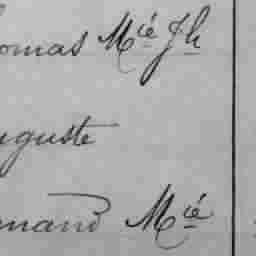 omas Mié Jh
uguste
nand Mié